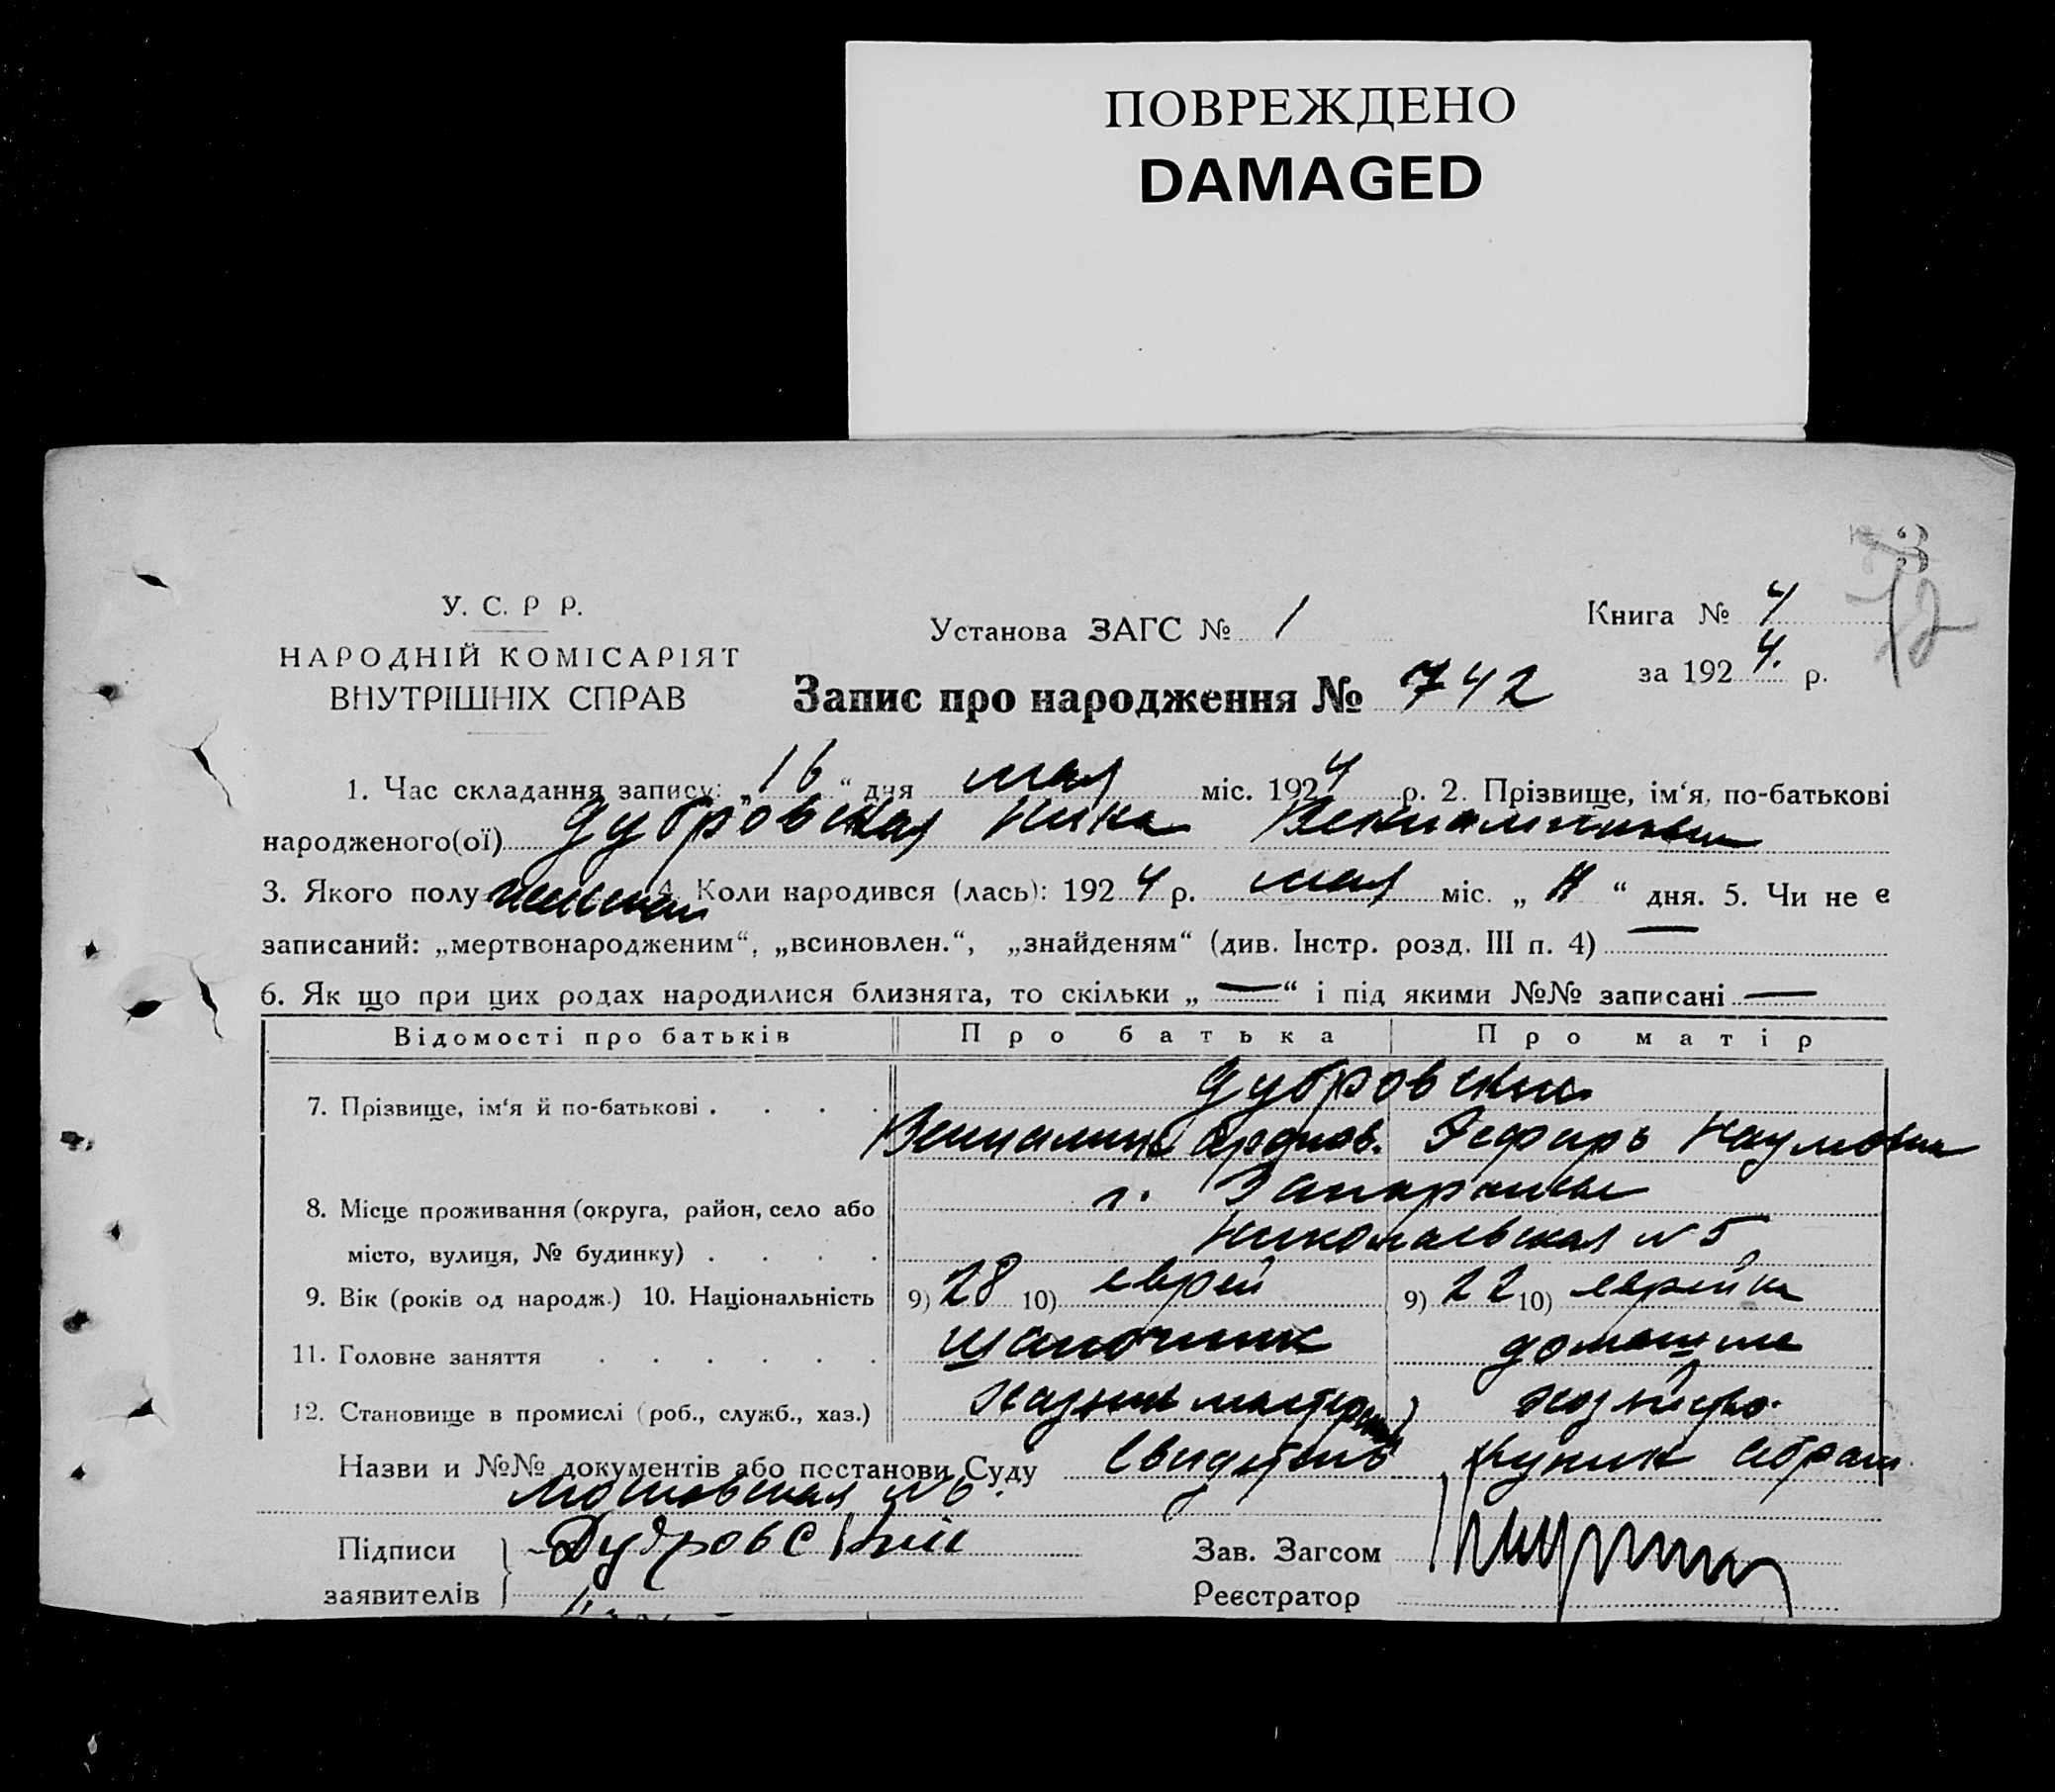 ПОВРЕЖДЕНО
DAMAGED
У. С. Р Р.
НАРОДНІЙ КОМІСАРІЯТ
ВНУТРІШНІХ СПРАВ
Установа ЗАГС № 1
Книга № 4
за 1924. р.
Запис про народження № 742
1. Час складання запису: „16“ дня мая міс. 1924 р. 2. Прізвище, ім‘я, по-батькові
народженого(ої) Дубровская Вениаминовна
3. Якого полу женская 4. Коли народився (лась): 1924 р. мая міс. „ “ дня. 5. Чи не є
записаний: „мертвонародженим“, „всиновлен.“, „знайденям“ (див. Інстр. розд. III п. 4) —
6. Як що при цих родах народилися близнята, то скільки „—“ і під якими №№ записані —
Відомості про батьків Про батька Про матір
7. Прізвище, ім‘я й по-батькові . . . . Дубровские
Вениамин Эсфирь Наумовна
8. Місце проживання (округа, район, село або
місто, вулиця, № будинку) . . . . Николаевская № 5
9. Вік (років од народж.) 10. Національність 9) 28 10) еврей 9) 22 10) еврейка
11. Головне заняття . . . . . . шапочник домашнее
12. Становище в промислі (роб., служб., хаз.) хозяйство.
Назви и №№ документів або постанови Суду Абрам
Московская № 6.
Підписи
заявителів
Дубровский
Зав. Загсом
Реєстратор